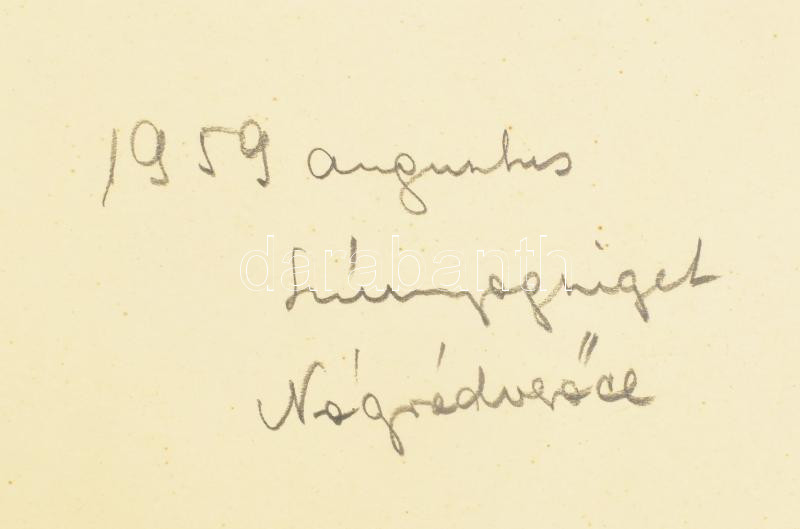 1959 augusztus
Szúnyogsziget
Nógrádverőce
darabanth